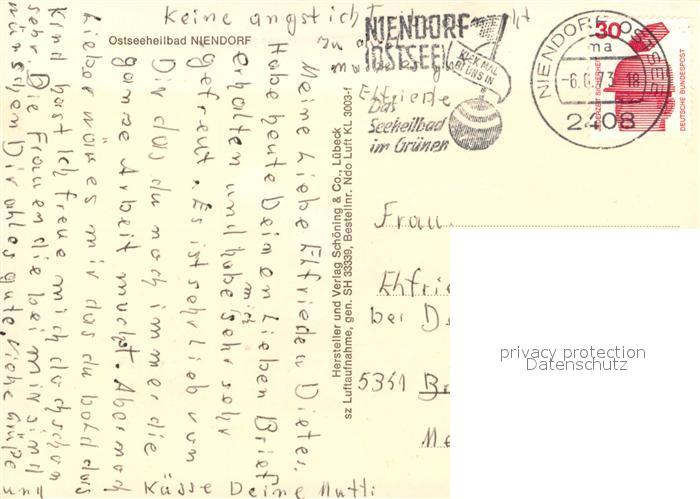 Ostseeheilbad NIENDORF
Meine Liebe Elfriede u Dieter,
Habe heute Deinen Lieben Brief
erhalten und habe mich sehr sehr
gefreut. Es ist sehr lieb von
Dir das du noch immer die
ganze Arbeit machst. Aber noch
Lieber wäre es mir das du bald das
Kind hast ich freue mich doch schon
sehr. Die Frauen die bei mir sind
wünschen Dir ahles gute. Viehe Grüße und
Küsse Deine Mutti
Keine angst ich
Elfriede
Hersteller und Verlag Schöning & Co., Lübeck
sz Luftaufnahme, gen. SH 33339, Bestellnr. Ndo Luft KL 3003-f
NIENDORF
OSTSEE
KIEK MAL
BI UNS IN
Das
Seeheilbad
im Grünen
NIENDORF OSTSEE
ma
-6.
73
18
2408
30
JEDERZEIT SICHERHEIT
DEUTSCHE BUNDESPOST
Frau
bei
5351
privacy protection
Datenschutz